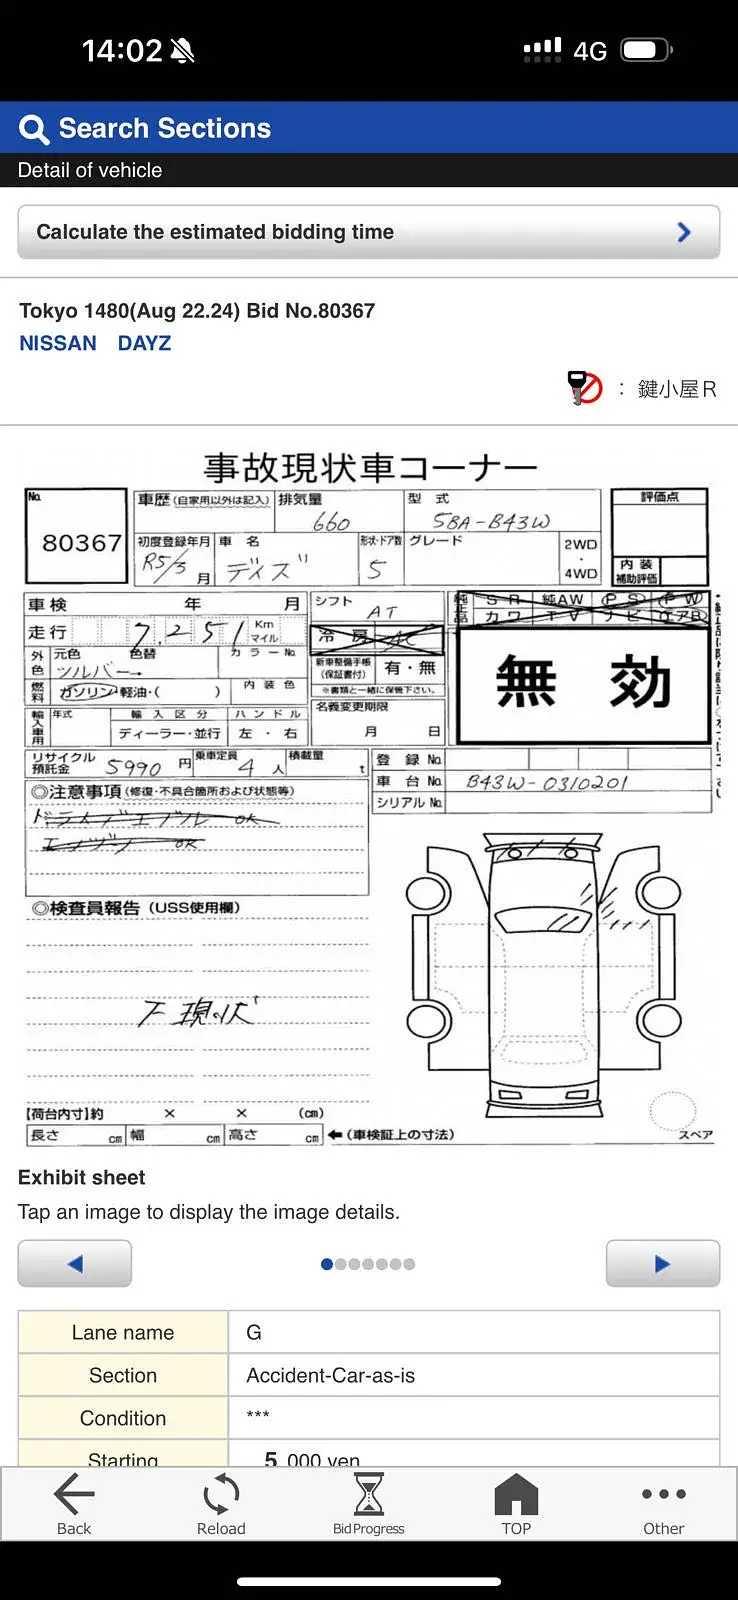 14:02 4G
Search Sections
Detail of vehicle
Calculate the estimated bidding time
Tokyo 1480(Aug 22.24) Bid No.80367
NISSAN DAYZ
: 鍵小屋R
事故現状車コーナー
No. 80367
車歴(自家用以外は記入) 排気量 660 型式 5BA-B43W
初度登録年月 R5/3月 車名 デイズ 形状・ドア数 5 グレード 2WD・4WD
評価点
内装補助評価
車検 年 月 シフト AT
走行 7,251 Km マイル 冷房 AC
純正品 SR 純AW PS PW
カワ TV ナビ エアB
外色 元色 シルバー 色替 カラーNo.
新車整備手帳(保証書付) 有・無
※書類と一緒に保管下さい。
燃料 ガソリン・軽油・( ) 内装色
名義変更期限 月 日
無効
輸入車用 年式 輸入区分 ハンドル
ディーラー・並行 左・右
リサイクル預託金 5990円 乗車定員 4人 積載量 t
登録No.
車台No. B43W-0310201
シリアルNo.
◎注意事項(修復・不具合箇所および状態等)
ドライブエブル OK
エンジン OK
◎検査員報告(USS使用欄)
下現状
【荷台内寸】約 × × (cm)
長さ cm 幅 cm 高さ cm ←(車検証上の寸法)
スペア
Exhibit sheet
Tap an image to display the image details.
Lane name G
Section Accident-Car-as-is
Condition ***
Starting 5,000 yen
Back Reload BidProgress TOP Other